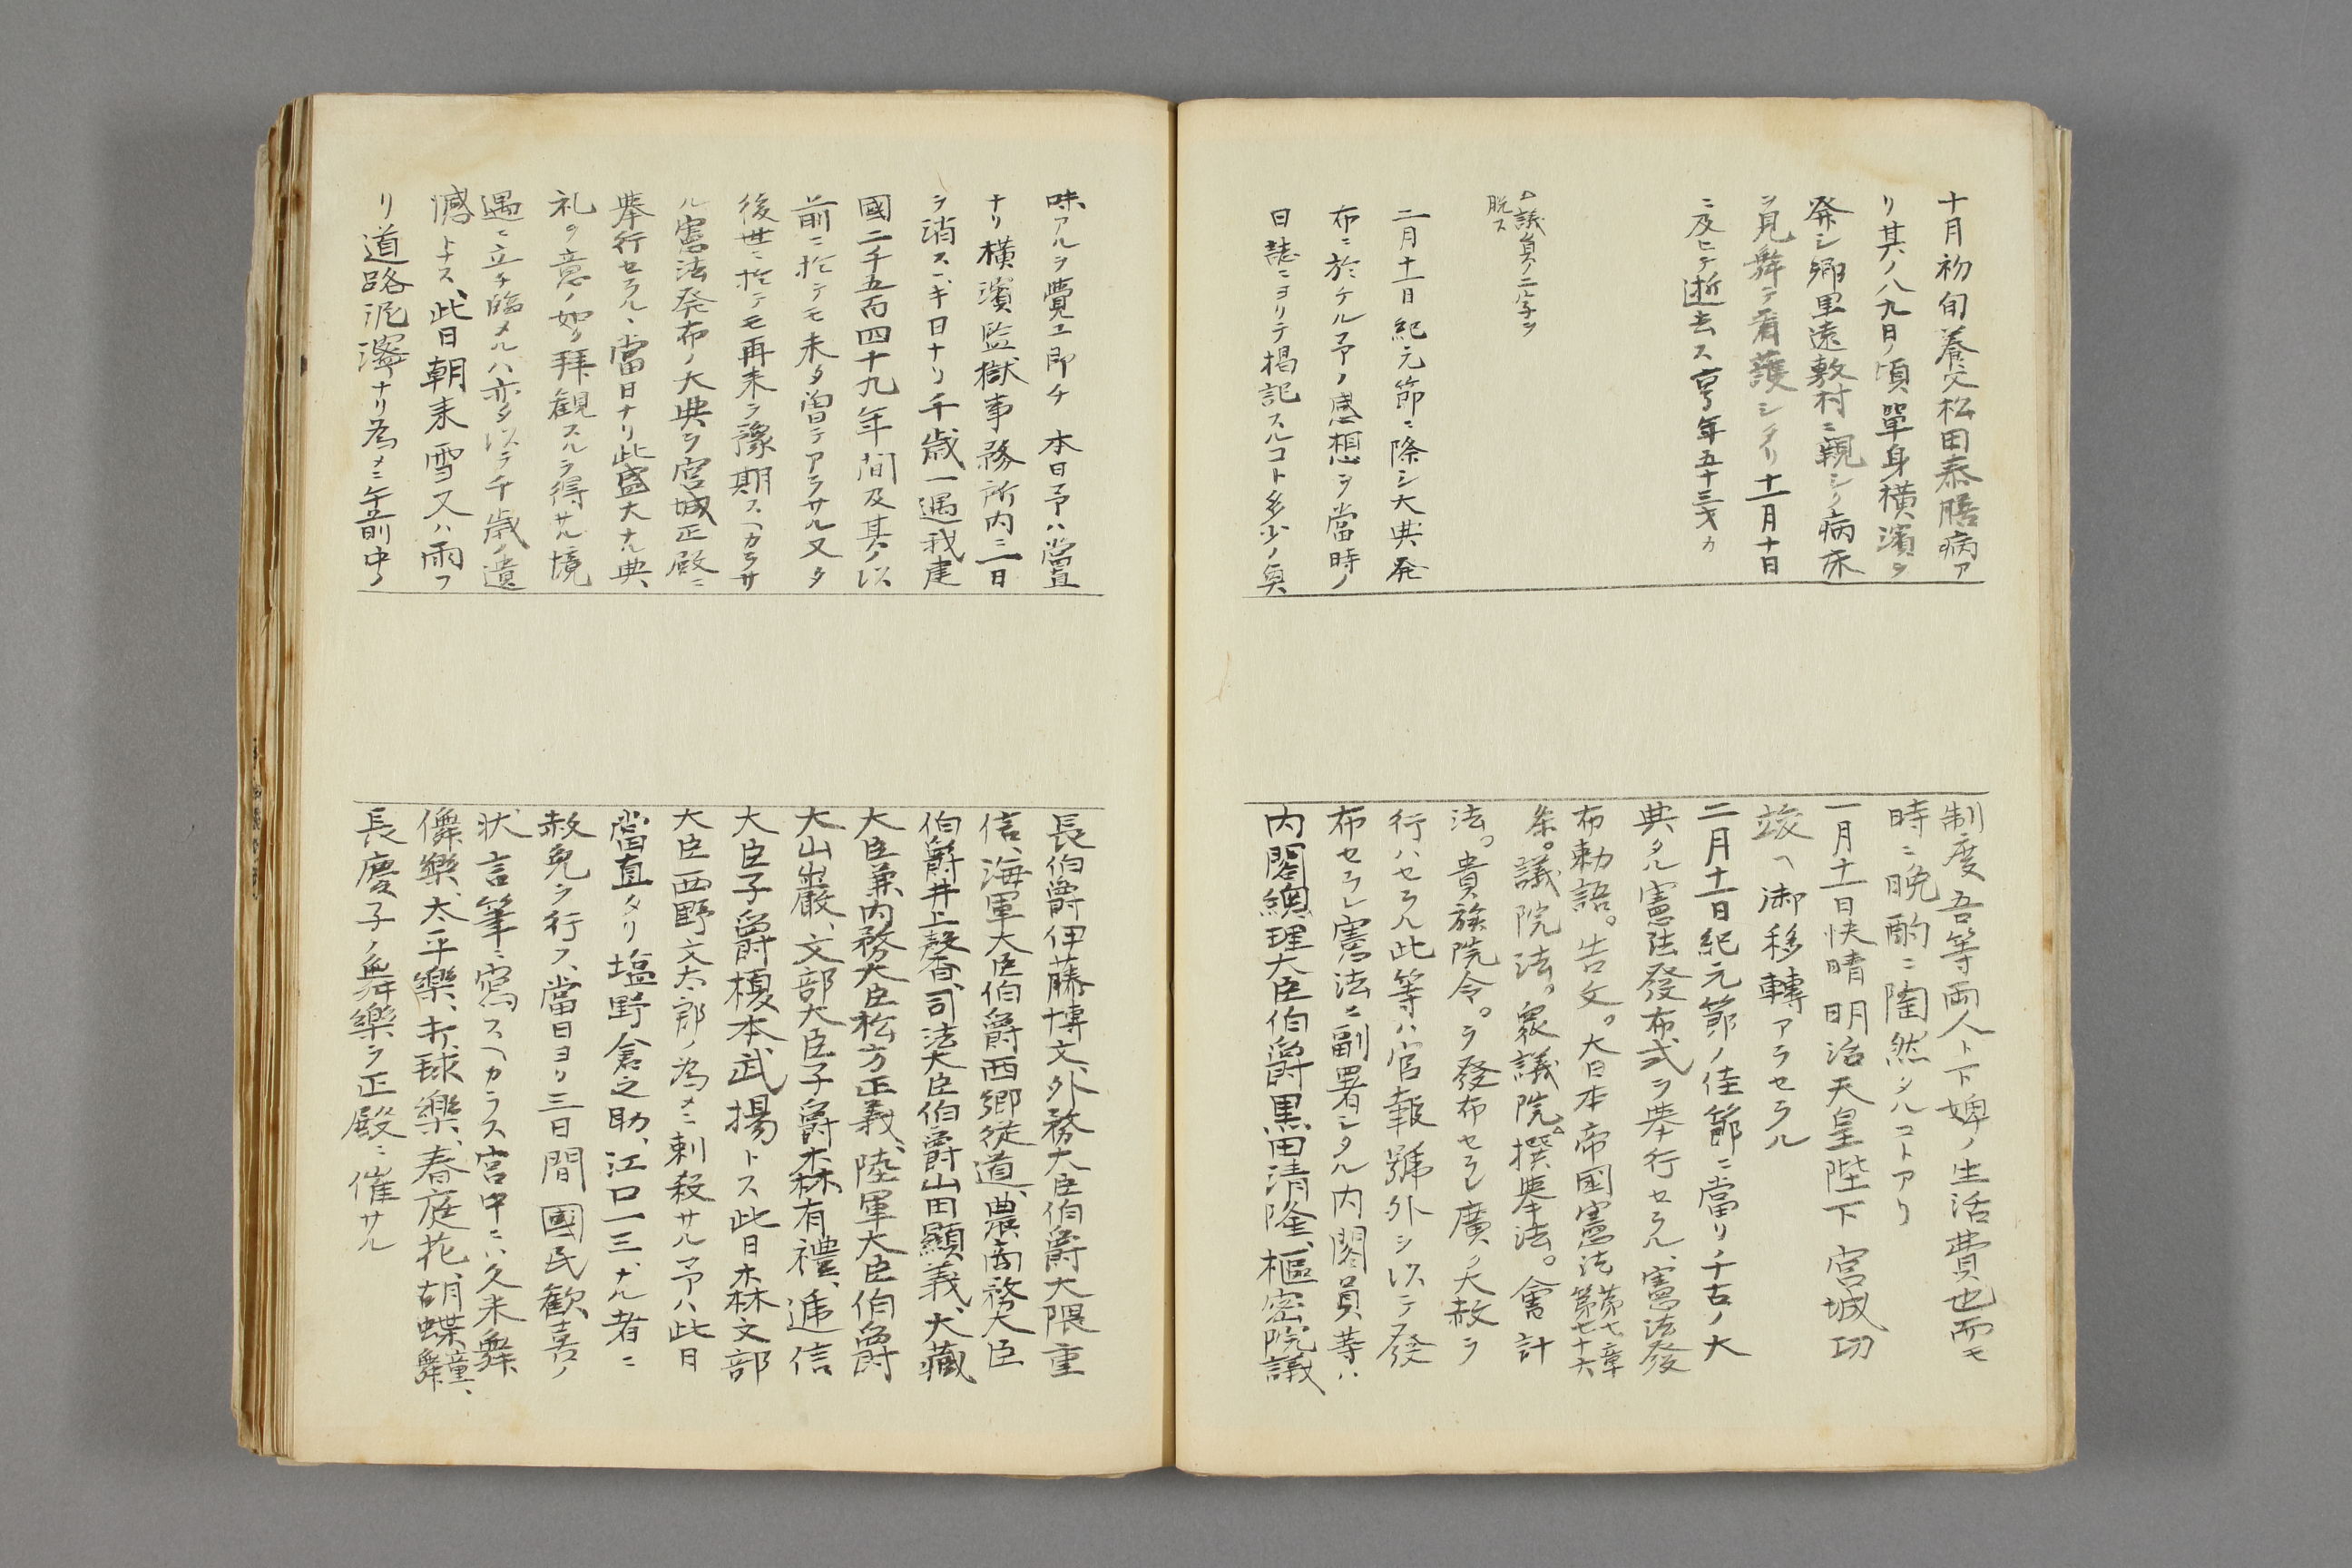 十月初旬養父松田泰膳病ア
リ其ノ八九日ノ頃單身横濱ヲ
発シ郷里遠敷村ニ親シク病床
ヲ見舞テ看護シタリ十一月十日
ニ及ヒテ逝去ス享年五十三才カ
△議員ノ二字ヲ
脱ス
二月十一日紀元節ニ際シ大典発
布ニ於ケル予ノ感想ヲ當時ノ
日誌ニヨリテ掲記スルコト多少ノ興
制度吾等両人ト下婢ノ生活費也而モ
時ニ晩酌ニ陶然タルコトアリ
一月十一日快晴明治天皇陛下宮城功
竣ヘ御移轉アラセラル
二月十一日紀元節ノ佳節ニ當リ千古ノ大
典タル憲法發布式ヲ挙行セラル、憲法發
布勅語。告文。大日本帝國憲法第七章第七十六
条。議院法。衆議院△撰挙法。會計
法。貴族院令。ヲ發布セラレ廣ク大赦ヲ
行ハセラル此等ハ官報號外シ以テ發
布セラレ憲法ニ副署シタル内閣員等ハ
内閣總理大臣伯爵黒田清隆、樞密院議
味アルヲ覺ユ即チ 本日予ハ當直
ナリ横濱監獄事務所内ニ一日
ヲ消スヘキ日ナリ千歳一遇我建
國二千五百四十九年間及其ノ以
前ニ於テモ未タ曽テアラサル又タ
後世ニ於テモ再来ヲ豫期スヘカラサ
ル憲法発布ノ大典ヲ宮城正殿ニ
挙行セラル、當日ナリ此盛大ナル典
礼ヲ意ノ如ク拝観スルヲ得サル境
遇ニ立チ臨メルハ亦タ以テ千歳ノ遺
憾トス、此日朝来雪又ハ雨フ
リ道路泥濘ナリ為メニ午前中ノ
長伯爵伊藤博文、外務大臣伯爵大隈重
信、海軍大臣伯爵西郷従道、農商務大臣
伯爵井上馨、司法大臣伯爵山田顯義、大藏
大臣兼内務大臣松方正義、陸軍大臣伯爵
大山巌、文部大臣子爵森有禮、逓信
大臣子爵榎本武揚トス此日森文部
大臣西野文太郎ノ為メニ刺殺サル予ハ此日
當直タリ塩野倉之助、江口一三ナル者ニ
赦免ヲ行フ、當日ヨリ三日間國民歓喜ノ
状言筆ニ寫スヘカラス宮中ニハ久米舞
儛樂、太平樂、打球樂、春庭花、胡蝶童舞、
長慶子ノ舞樂ヲ正殿ニ催サル